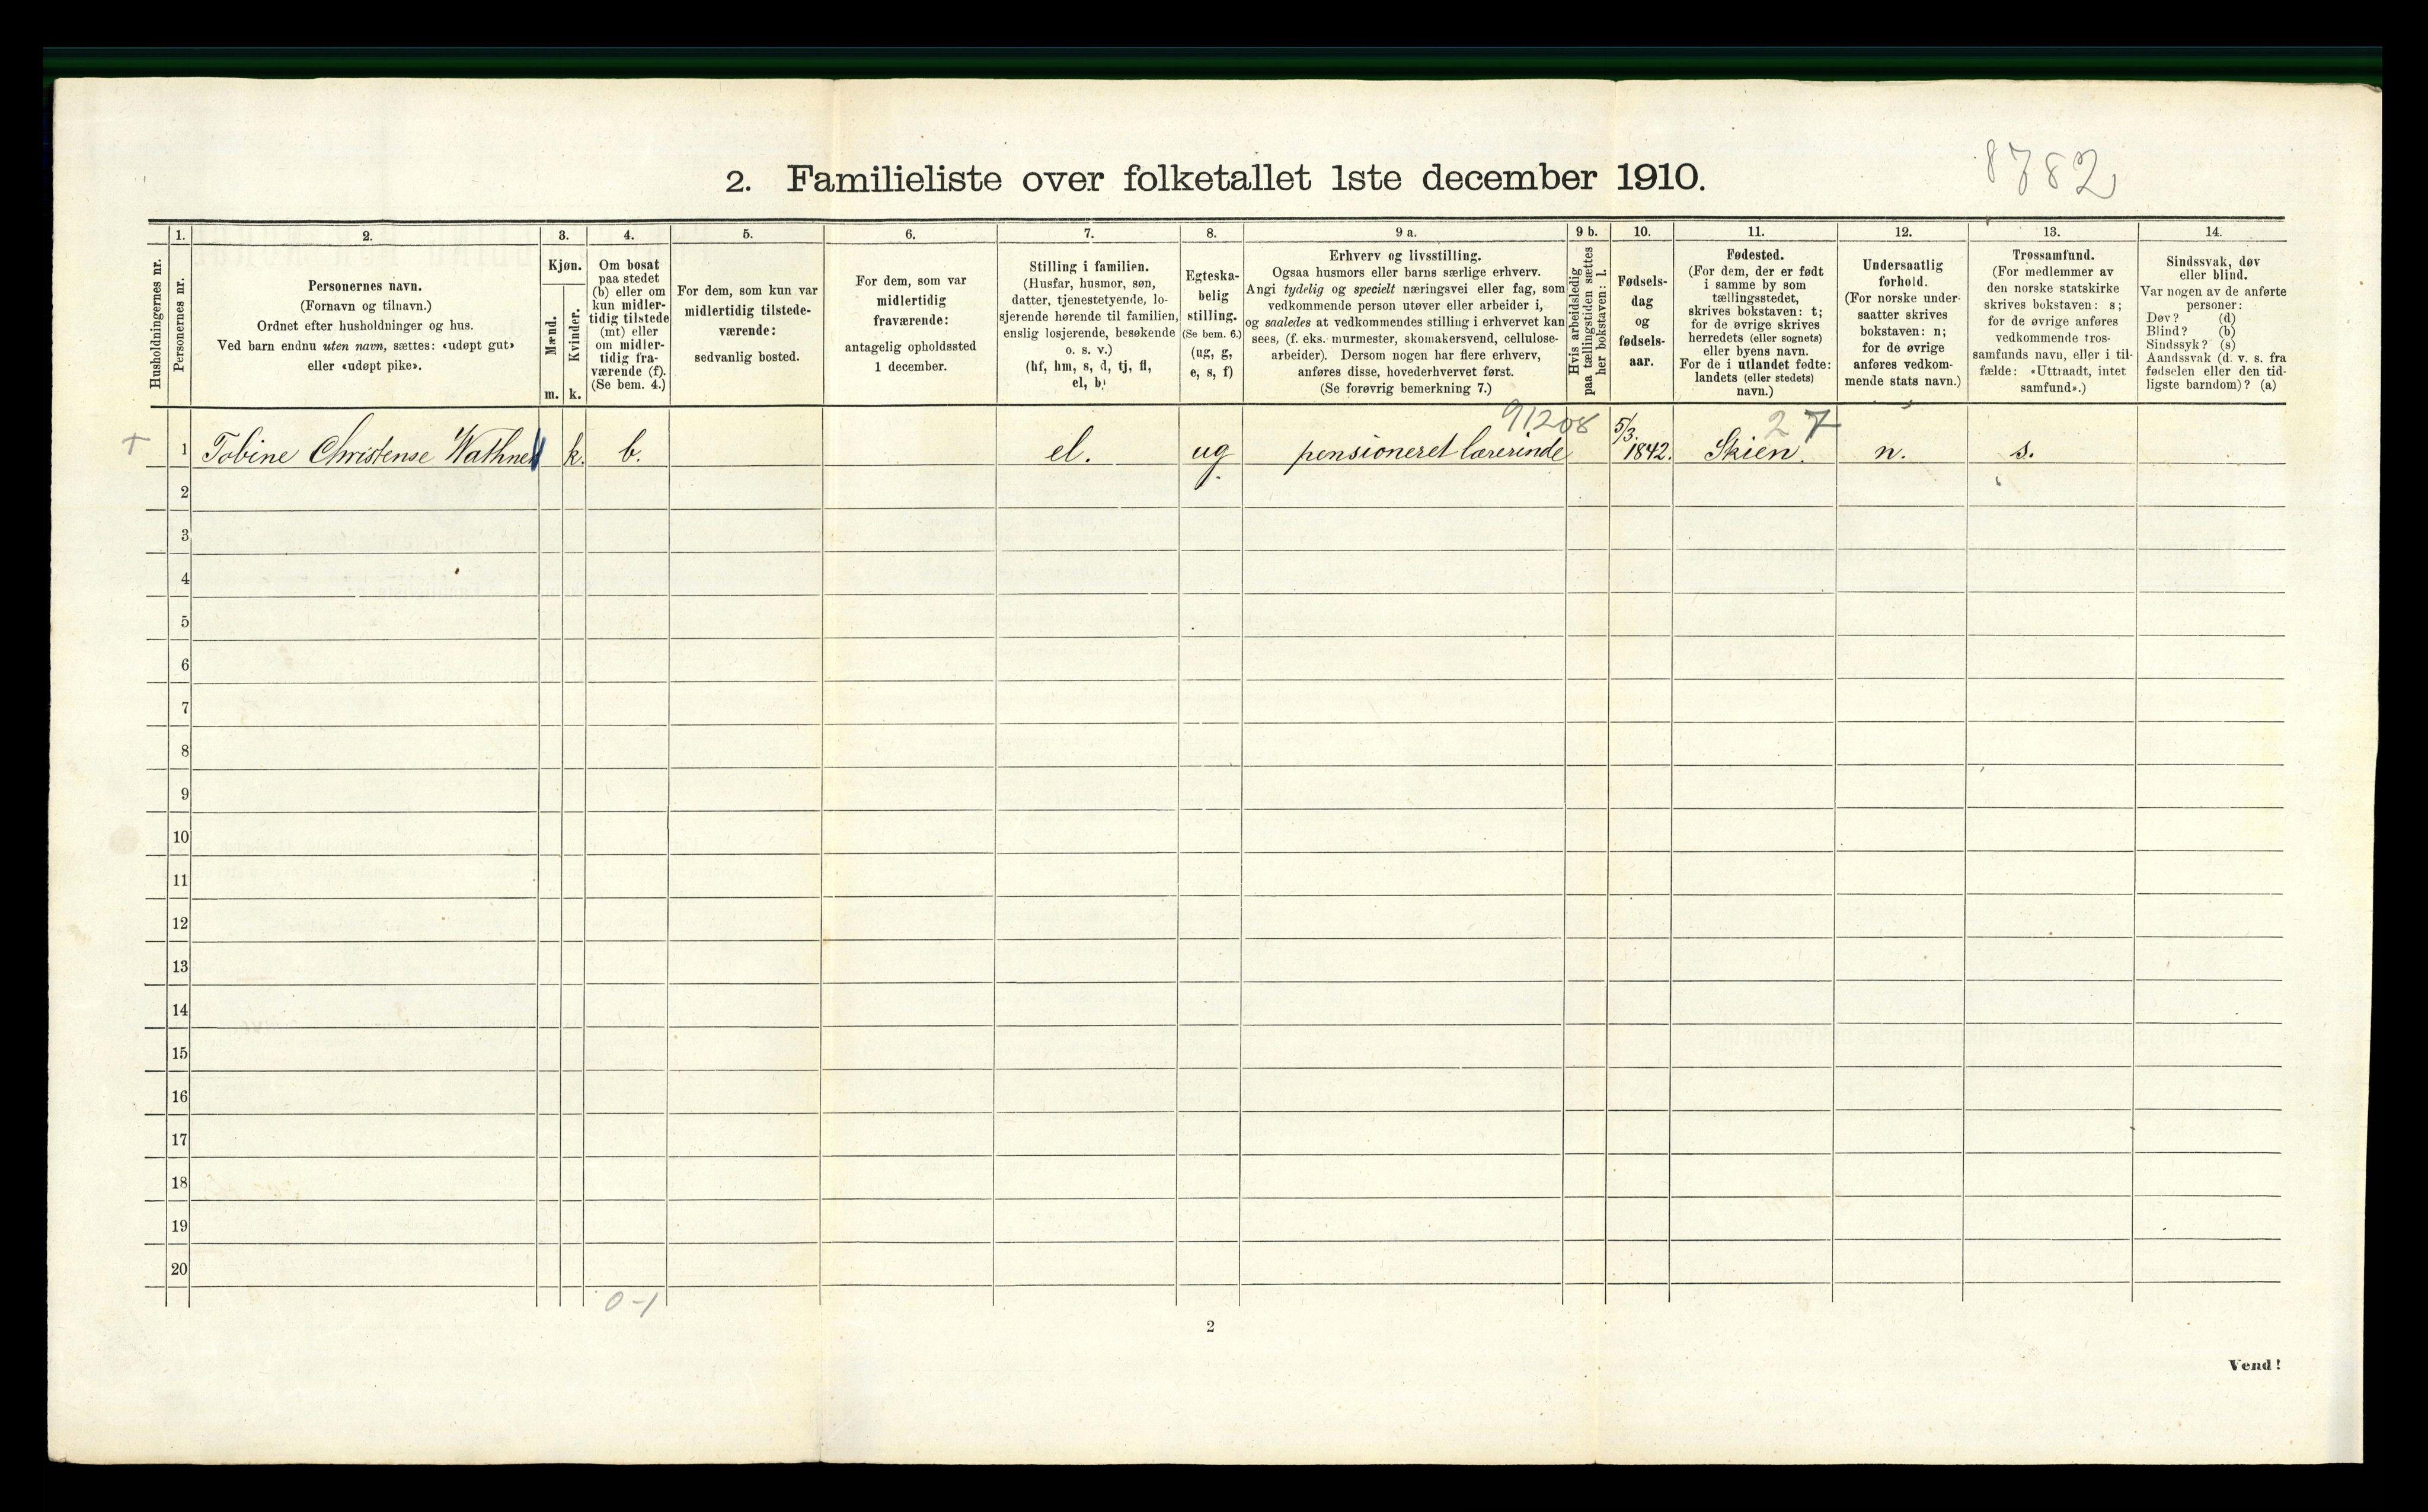 8782
2. Familieliste over folketallet 1ste december 1910.
Husholdningernes nr.
1.
Personernes nr.
2.
Personernes navn.
(Fornavn og tilnavn.)
Ordnet efter husholdninger og hus.
Ved barn endnu uten navn, sættes: «udøpt gut»
eller «udøpt pike».
3.
Kjøn.
Mænd.
m.
Kvinder.
k.
4.
Om bosat
paa stedet
(b) eller om
kun midler-
tidig tilstede
(mt) eller
om midler-
tidig fra-
værende (f).
(Se bem. 4.)
5.
For dem, som kun var
midlertidig tilstede-
værende:
sedvanlig bosted.
6.
For dem, som var
midlertidig
fraværende:
antagelig opholdssted
1 december.
7.
Stilling i familien.
(Husfar, husmor, søn,
datter, tjenestetyende, lo-
sjerende hørende til familien,
enslig losjerende, besøkende
o. s. v.)
(hf, hm, s, d, tj, fl,
el, b)
8.
Egteska-
belig
stilling.
(Se bem. 6.)
(ug, g,
e, s, f)
9 a.
Erhverv og livsstilling.
Ogsaa husmors eller barns særlige erhverv.
Angi tydelig og specielt næringsvei eller fag, som
vedkommende person utøver eller arbeider i,
og saaledes at vedkommendes stilling i erhvervet kan
sees, (f. eks. murmester, skomakersvend, cellulose-
arbeider). Dersom nogen har flere erhverv,
anføres disse, hovederhvervet først.
(Se forøvrig bemerkning 7.)
9 b.
Hvis arbeidsledig
paa tællingstiden sættes
her bokstaven: l.
10.
Fødsels-
dag
og
fødsels-
aar.
11.
Fødested.
(For dem, der er født
i samme by som
tællingsstedet,
skrives bokstaven: t;
for de øvrige skrives
herredets (eller sognets)
eller byens navn.
For de i utlandet fødte:
landets (eller stedets)
navn.)
12.
Undersaatlig
forhold.
(For norske under-
saatter skrives
bokstaven: n;
for de øvrige
anføres vedkom-
mende stats navn.)
13.
Trossamfund.
(For medlemmer av
den norske statskirke
skrives bokstaven: s;
for de øvrige anføres
vedkommende tros-
samfunds navn, eller i til-
fælde: «Uttraadt, intet
samfund».)
14.
Sindssvak, døv
eller blind.
Var nogen av de anførte
personer:
Døv? (d)
Blind? (b)
Sindssyk? (s)
Aandssvak (d. v. s. fra
fødselen eller den tid-
ligste barndom)? (a)
91208 27
+ 1 Tobine Christense Wathne k. b. el. ug. pensioneret lærerinde 5/3. 1842. Skien. n. s.
2
3
4
5
6
7
8
9
10
11
12
13
14
15
16
17
18
19
20
0-1
2
Vend!